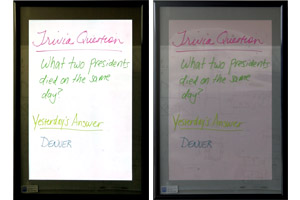 Trivia Question
What two Presidents
died on the same
day?
Yesterday's Answer
DENVER
Trivia Question
What two Presidents
died on the same
day?
Yesterday's Answer
DENVER